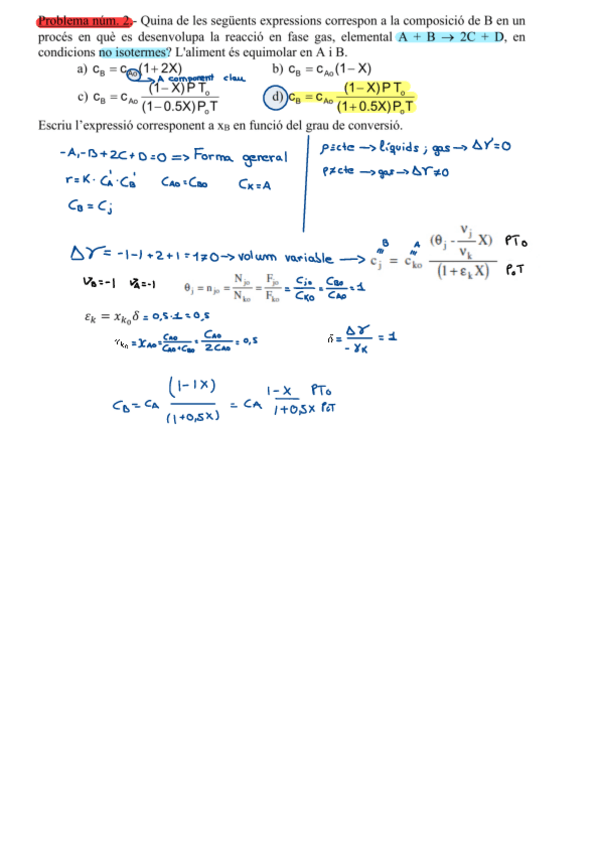 Problema núm. 2.- Quina de les següents expressions correspon a la composició de B en un
procés en què es desenvolupa la reacció en fase gas, elemental A + B → 2C + D, en
condicions no isotermes? L'aliment és equimolar en A i B.
a) c_B = c_Ao(1+2X) b) c_B = c_Ao(1−X)
→ A component clau
c) c_B = c_Ao (1−X)P T_o / (1−0.5X)P_oT d) c_B = c_Ao (1−X)P T_o / (1+0.5X)P_oT
Escriu l'expressió corresponent a x_B en funció del grau de conversió.
-A,-B+2C+D=0 => Forma general
r=K·C_A^1·C_B^1 C_A0=C_B0 C_K=A
C_B=C_j
ρ=cte → líquids ; gas → Δγ=0
ρ≠cte → gas → Δγ≠0
Δγ= -1-1+2+1=1≠0 → volum variable → c_j = c_ko (θ_j - ν_j/ν_k X) / (1+ε_k X) PT_0 / P_0T
B A
ν_B=-1 ν_A=-1 θ_j = n_jo = N_jo/N_ko = F_jo/F_ko = C_jo/C_K0 = C_B0/C_A0 = 1
ε_k = x_k0 δ = 0,5·1=0,5
x_k0 = X_A0 = C_A0/C_A0+C_B0 = C_A0/2C_A0 = 0,5 δ = Δγ/-γ_K = 1
C_B = C_A (1-1X)/(1+0,5X) = C_A 1-X/1+0,5X PT_0/P_0T